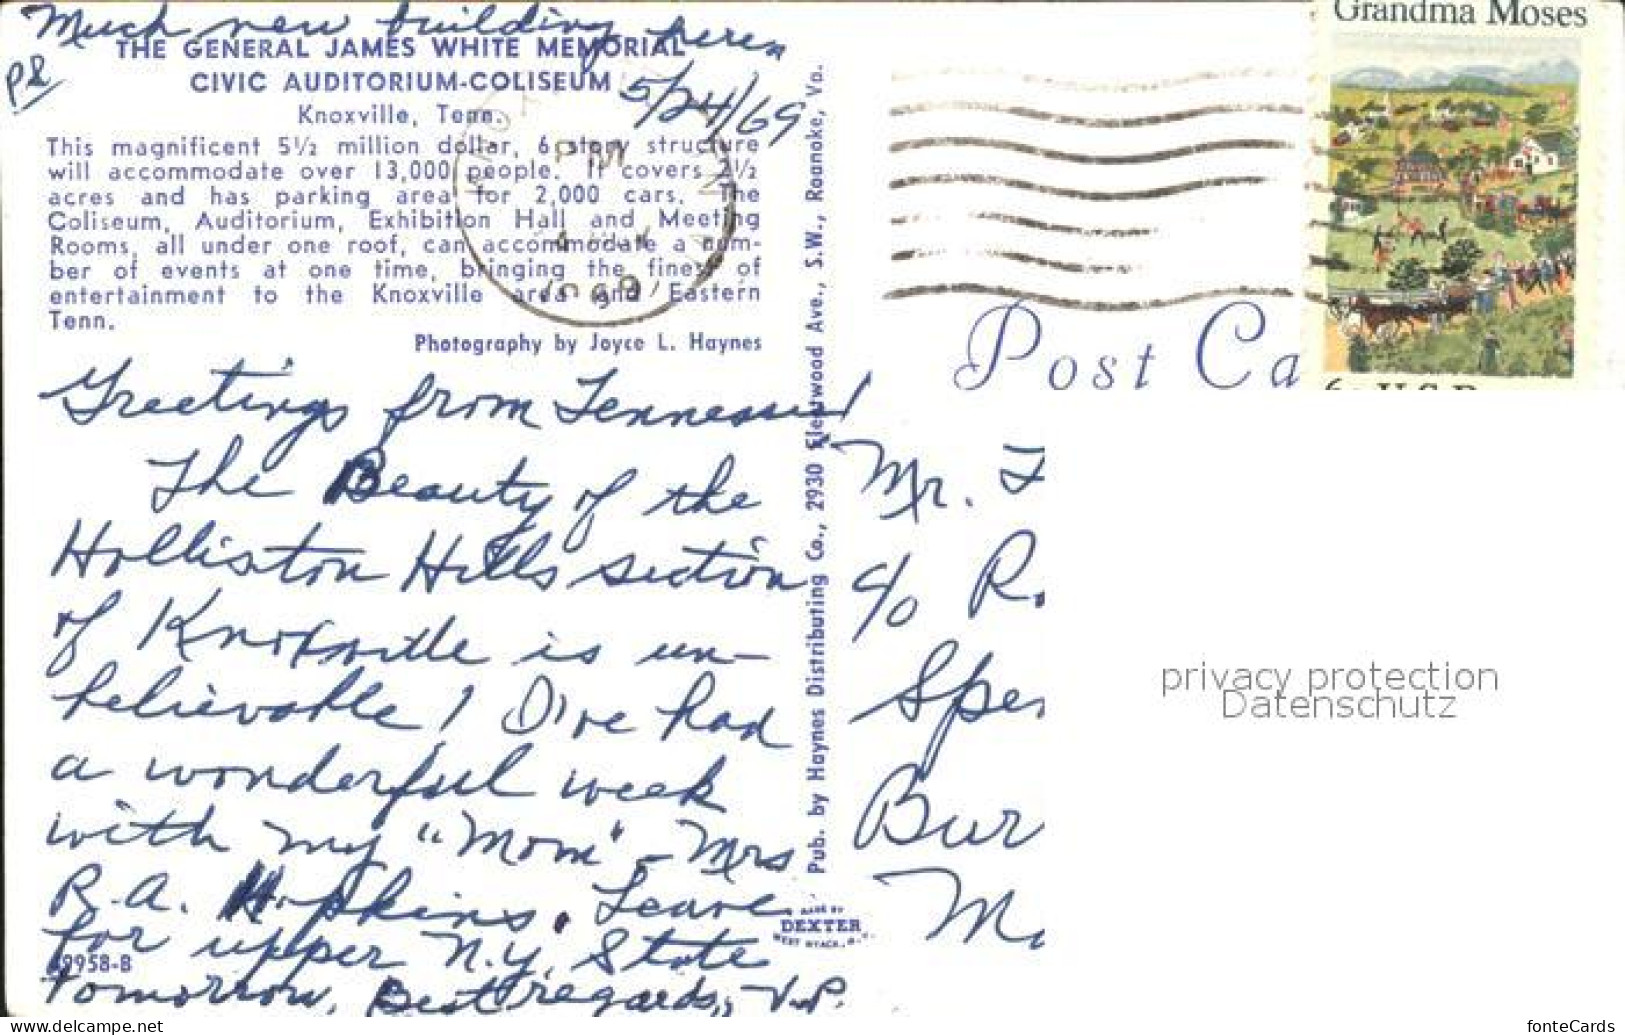 Much new building here
PS
THE GENERAL JAMES WHITE MEMORIAL
CIVIC AUDITORIUM-COLISEUM
Knoxville, Tenn.
5/24/69
This magnificent 5½ million dollar, 6 story structure
will accommodate over 13,000 people. It covers 2½
acres and has parking area for 2,000 cars. The
Coliseum, Auditorium, Exhibition Hall and Meeting
Rooms, all under one roof, can accommodate a num-
ber of events at one time, bringing the finest of
entertainment to the Knoxville area and Eastern
Tenn.
Photography by Joyce L. Haynes
Greetings from Tennessee!
The Beauty of the
Holliston Hills section
of Knoxville is un-
believable! I've had
a wonderful week
with my "Mom" - Mrs
R.A. Hopkins. Leave
for upper N.Y. State
Tomorrow, Best regards, V.P.
69958-B
Pub. by Haynes Distributing Co., 2930 Fleetwood Ave., S.W., Roanoke, Va.
MADE BY
DEXTER
WEST NYACK, N.Y.
PM
Grandma Moses
6c U.S.P
Post Ca
Mr.
c/o R.
Spe
Bur
privacy protection
Datenschutz
www.delcampe.net
fonteCards